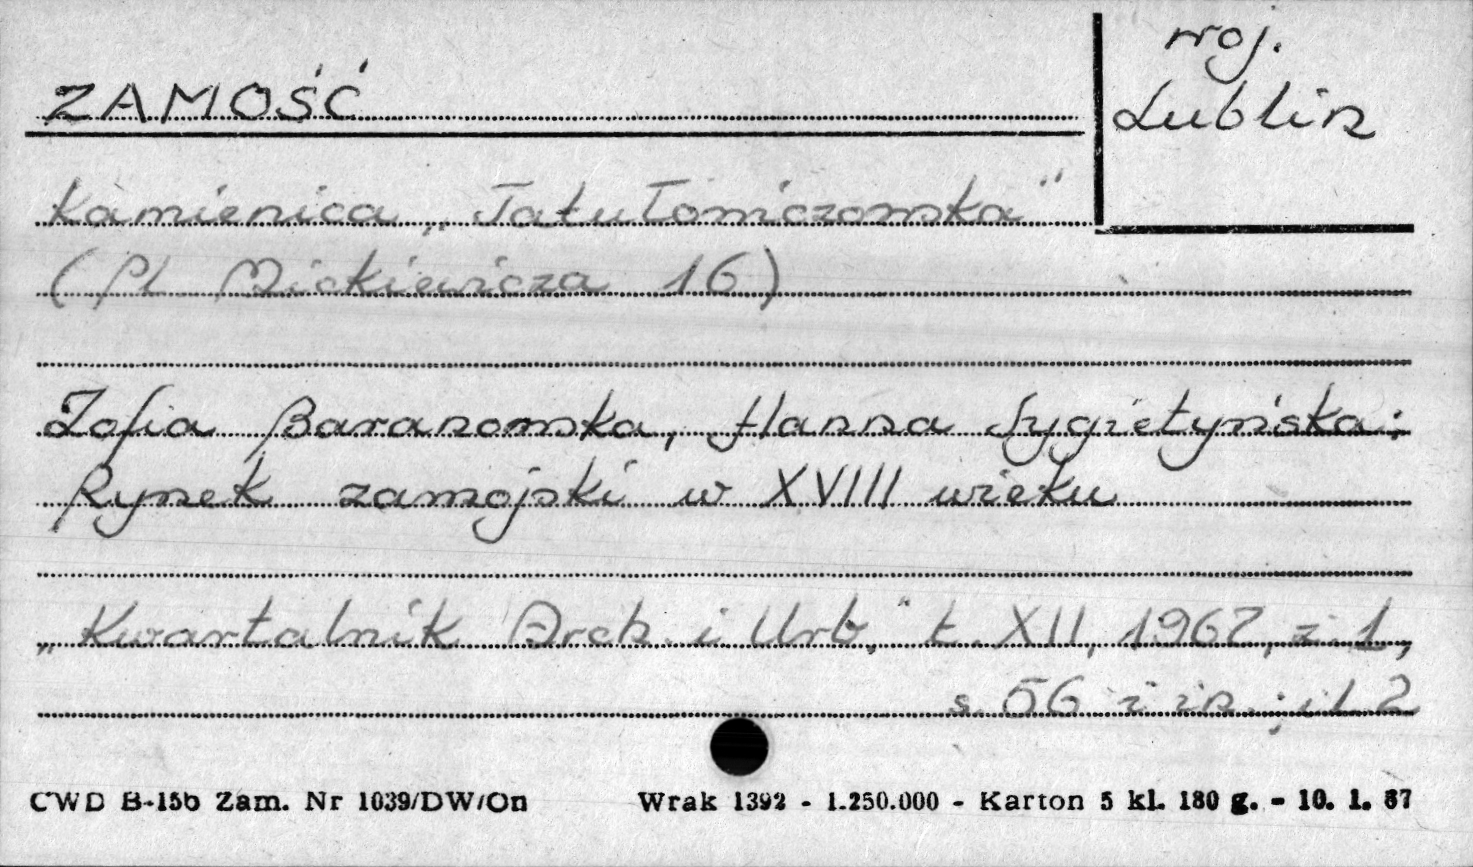 ZAMOŚĆ
woj.
Lublin
Kamienica „Tatułowiczowska"
(Pl. Mickiewicza 16)
Zofia Baranowska, Hanna Sygietyńska:
Rynek zamojski w XVIII wieku
„Kwartalnik Arch. i Urb." t. XII, 1967, z. 1,
s. 56 i in.; il. 2
CWD B-15b Zam. Nr 1039/DW/On Wrak 1392 - 1.250.000 - Karton 5 kl. 180 g. - 10. 1. 67